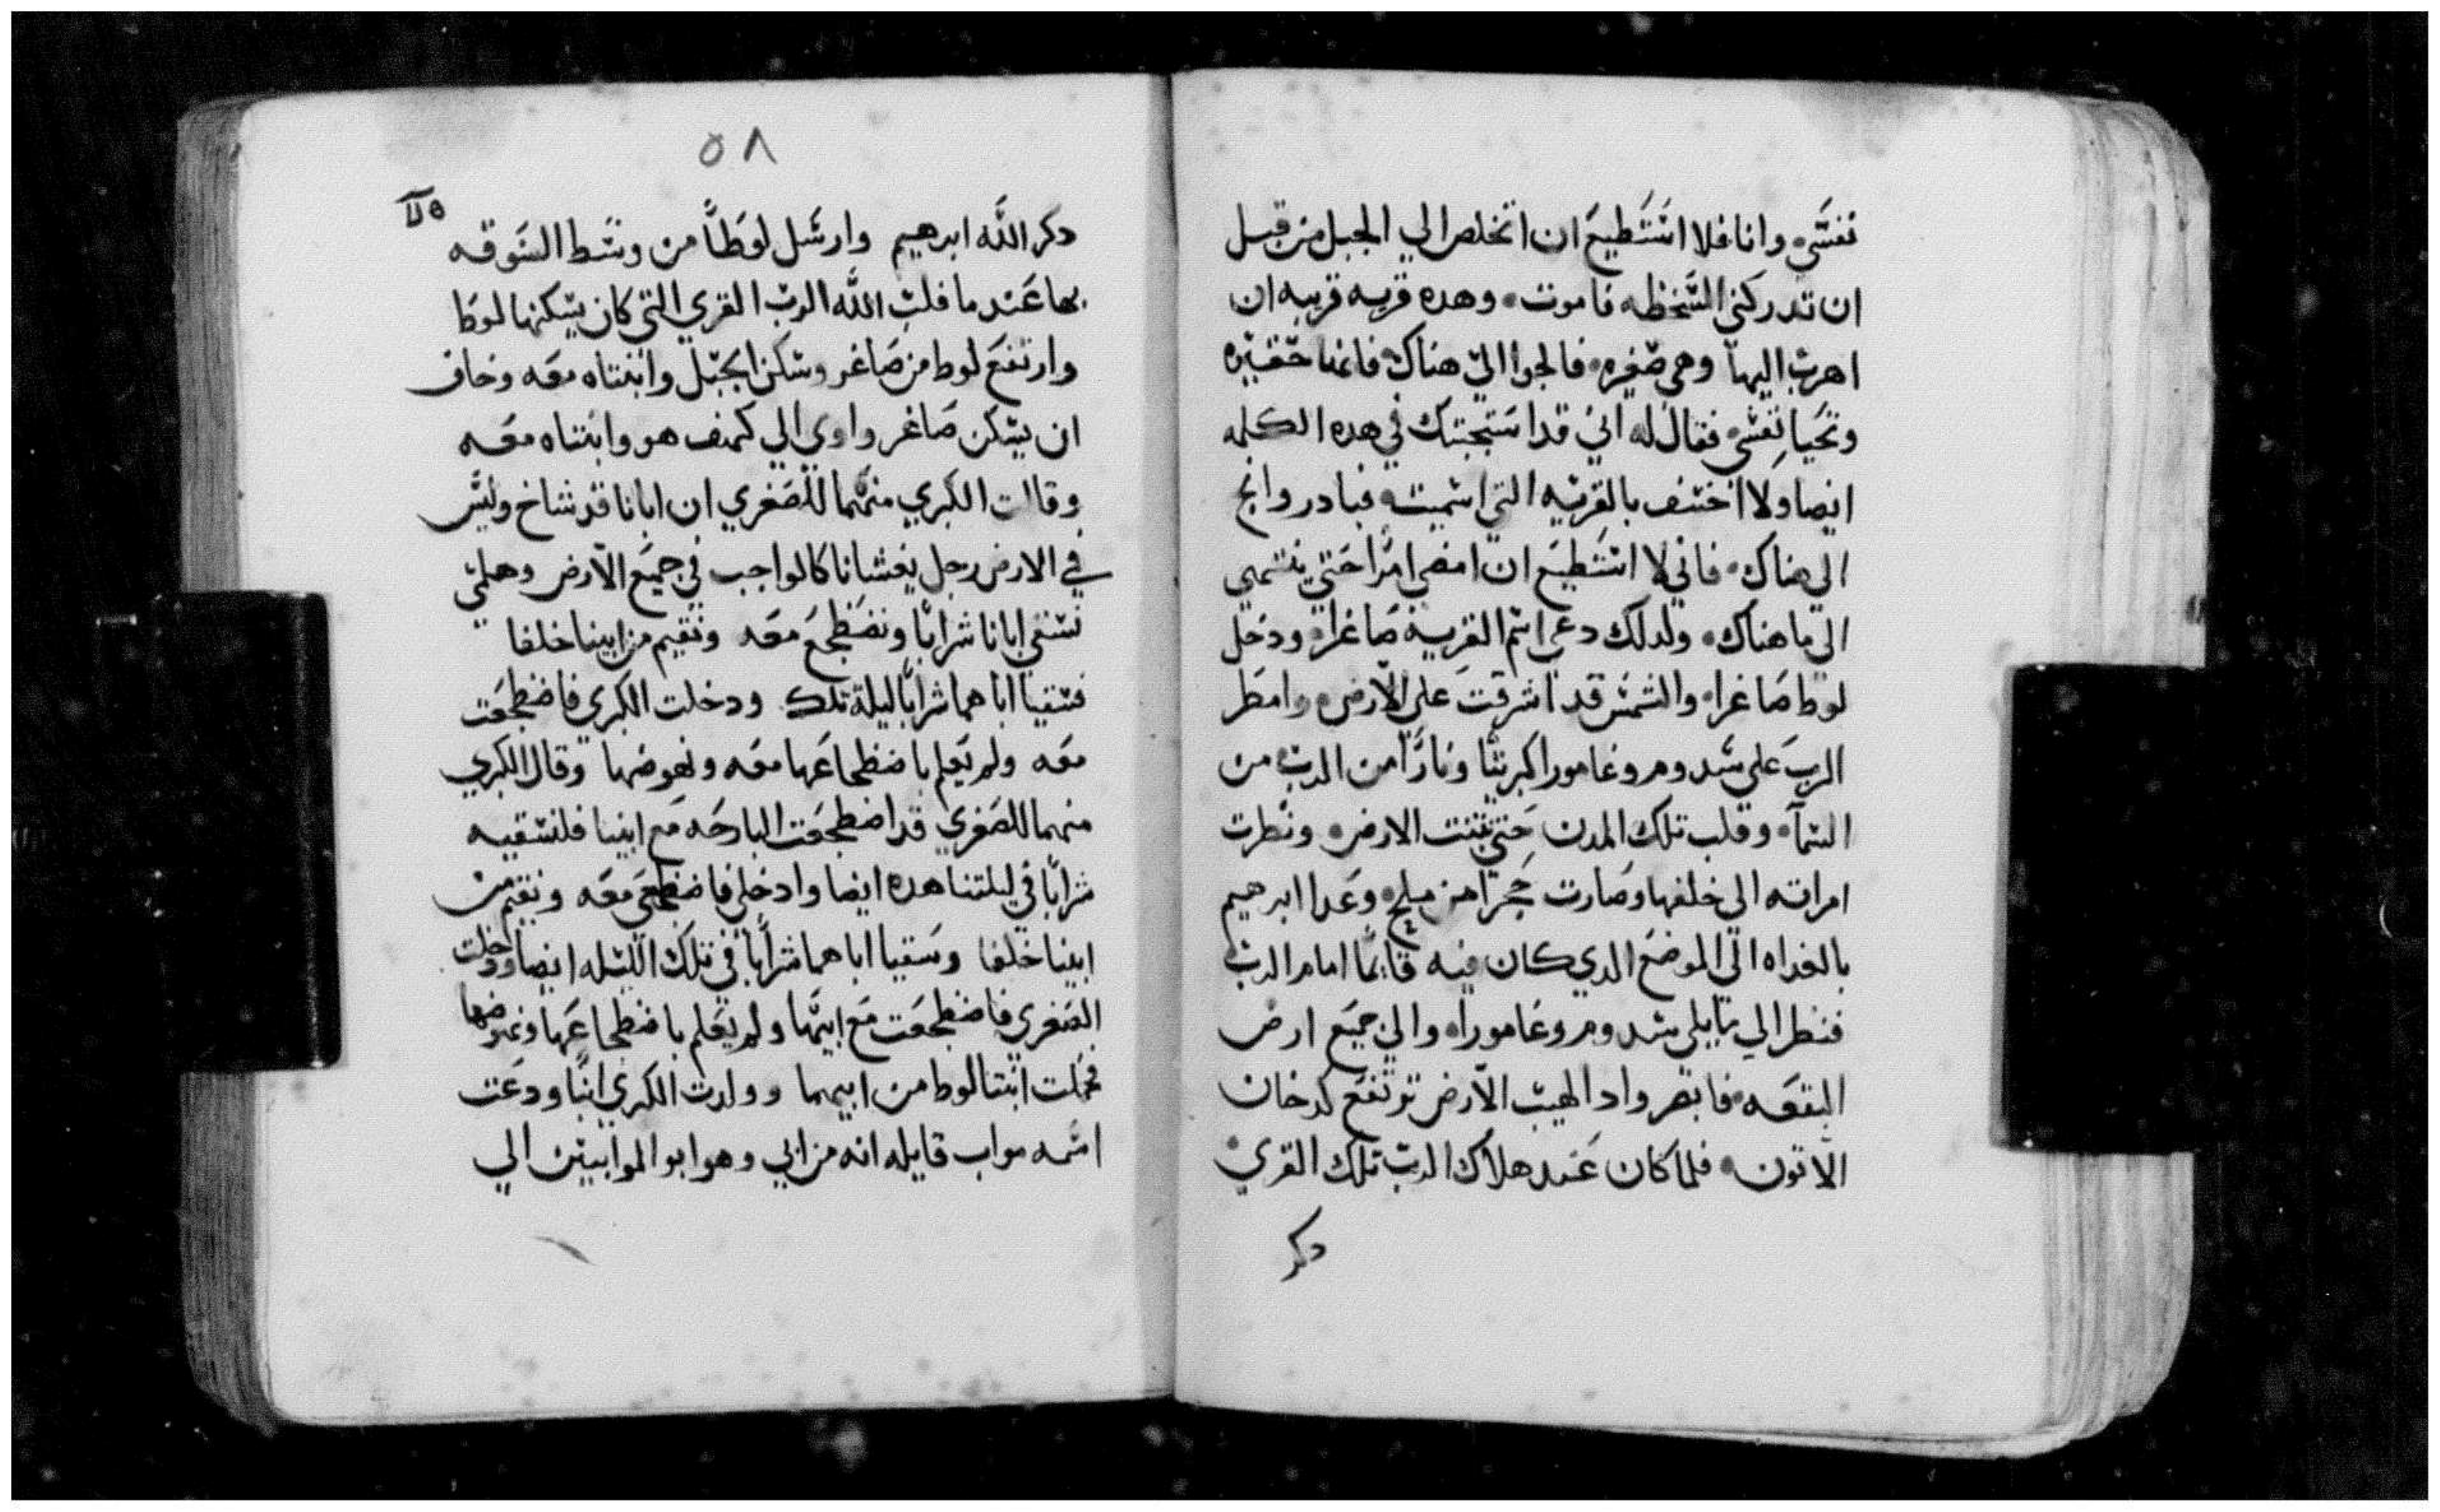 نفسي وانا فلا استطيع ان اتخلص الي الجبل من قبل
ان تدركني السخطه فاموت وهده قريه قريبه ان
اهرب اليها وهي صغيره فالجوا الي هناك فانها حقيره
وتحيا نفسي فقال له اني قد استجبتك في هده الكلمه
ايضا ولا اخسف بالقريه التي اسميت فبادر وانج
الي هناك فاني لا استطيع ان امضي امرا حتي ينتهي
الي ما هناك ولدلك دعي اسم القريه صاغرا ودخل
لوط صاغرا والشمس قد اشرقت علي الارض وامطر
الرب علي سدوم وغامورا كبريتا ونارا من الرب من
السماء وقلب تلك المدن حتي نبت الارض ونظرت
امراته الي خلفها وصارت حجرا من ملح وغدا ابرهيم
بالغداه الي الموضع الدي كان فيه قايما امام الرب
فنظر الي ما يلي سدوم وغامورا والي جميع ارض
البقعه فابصر واد الهيب الارض ترتفع كدخان
الاتون فلما كان عند هلاك الرب تلك القري
دكر
٥٨
دكر الله ابرهيم وارسل لوطا من وسط السوقه
بها عندما قلب الله الرب القري التي كان يسكنها لوط
وارتفع لوط من صاغر وسكن الجبل وابنتاه معه وخاف
ان يسكن صاغر واوي الي كهف هو وابنتاه معه
وقالت الكبري منهما للصغري ان ابانا قد شاخ وليس
في الارض رجل يغشانا كالواجب في جميع الارض وهلمي
نسقي ابانا شرابا ونضطجع معه ونقيم من ابينا خلفا
فسقيا اباهما شرابا ليلة تلك ودخلت الكبري فاضطجعت
معه ولم يعلم باضطجاعها معه ونهوضها وقال الكبري
منهما للصغري قد اضطجعت البارحه مع ابينا فلنسقيه
شرابا في ليلتنا هده ايضا وادخلي فاضطجعي معه ونقيم من
ابينا خلفا وسقيا اباهما شرابا في تلك الليله ايضا ودخلت
الصغري فاضطجعت مع ابيها ولم يعلم باضطجاعها ونهوضها
فحملت ابنتا لوط من ابيهما وولدت الكبري ابنا ودعت
اسمه مواب قايله انه من ابي وهو ابو الموابيين الي